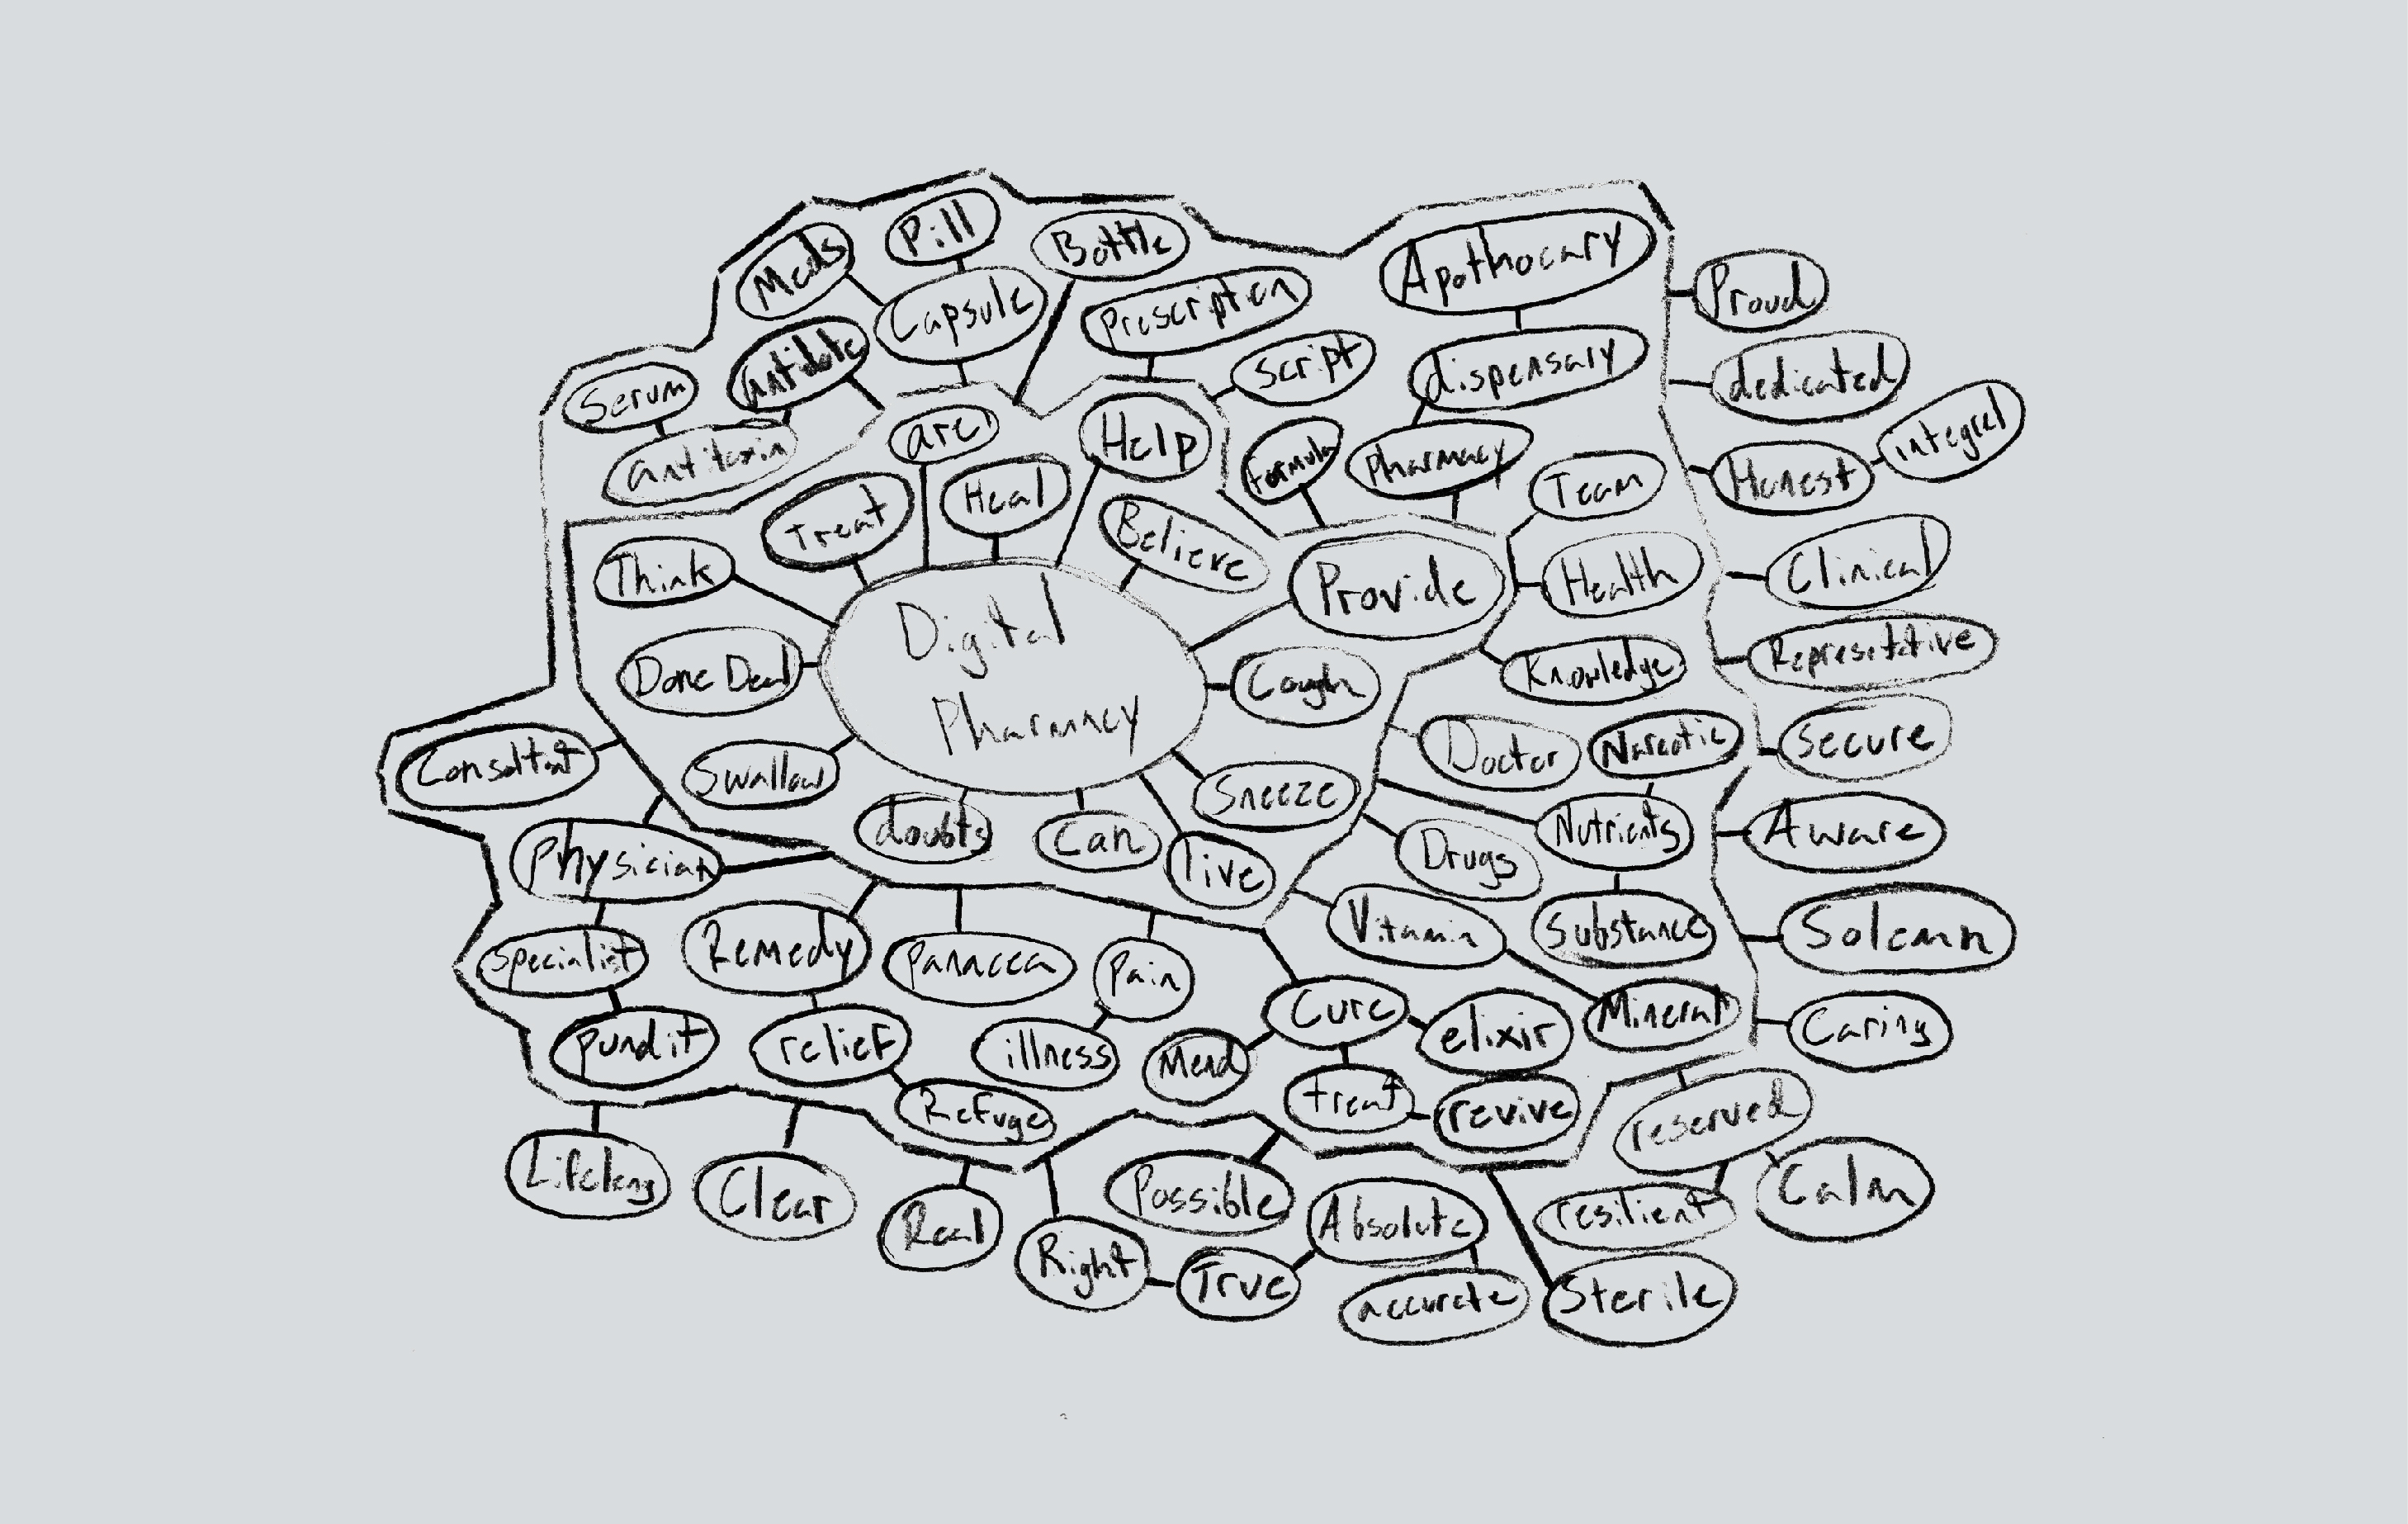 Pill
Meds
Bottle
Apothocary
Capsule
Prescription
Proud
Antidote
Script
dispensary
dedicated
Serum
are
Help
integral
antitoxin
Formula
Pharmacy
Team
Honest
Treat
Heal
Believe
Think
Provide
Health
Clinical
Digital
Pharmacy
Done Deal
Cough
Knowledge
Represetative
Consoltant
Swallow
Doctor
Narcotic
Secure
doubts
Can
Sneeze
Nutrients
Aware
Physician
live
Drugs
Specialist
Remedy
Panacea
Pain
Vitamin
Substance
Solemn
Cure
Mineral
Caring
pundit
relief
illness
Mend
elixir
Refuge
treat
revive
reserved
Lifelong
Clear
Possible
Calm
Real
Right
True
Absolute
resilient
accurate
Sterile